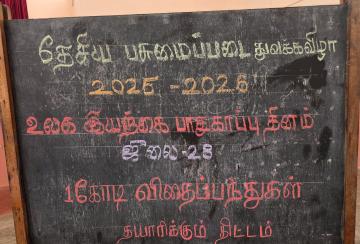 தேசிய பசுமைப்படை துவக்கவிழா
2025 - 2026
உலக இயற்கை பாதுகாப்பு தினம்
ஜீலை-28
1கோடி விதைப்பந்துகள்
தயாரிக்கும் திட்டம்